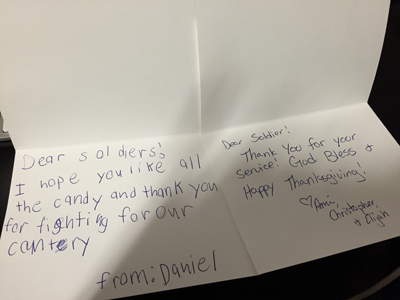 Dear soldiers!
I hope you like all
the candy and thank you
for fighting for our
cantery
from: Daniel
Dear Soldier!
Thank You for your
service! God Bless &
Happy Thanksgiving!
♡ Ami,
Christopher,
& Elijah